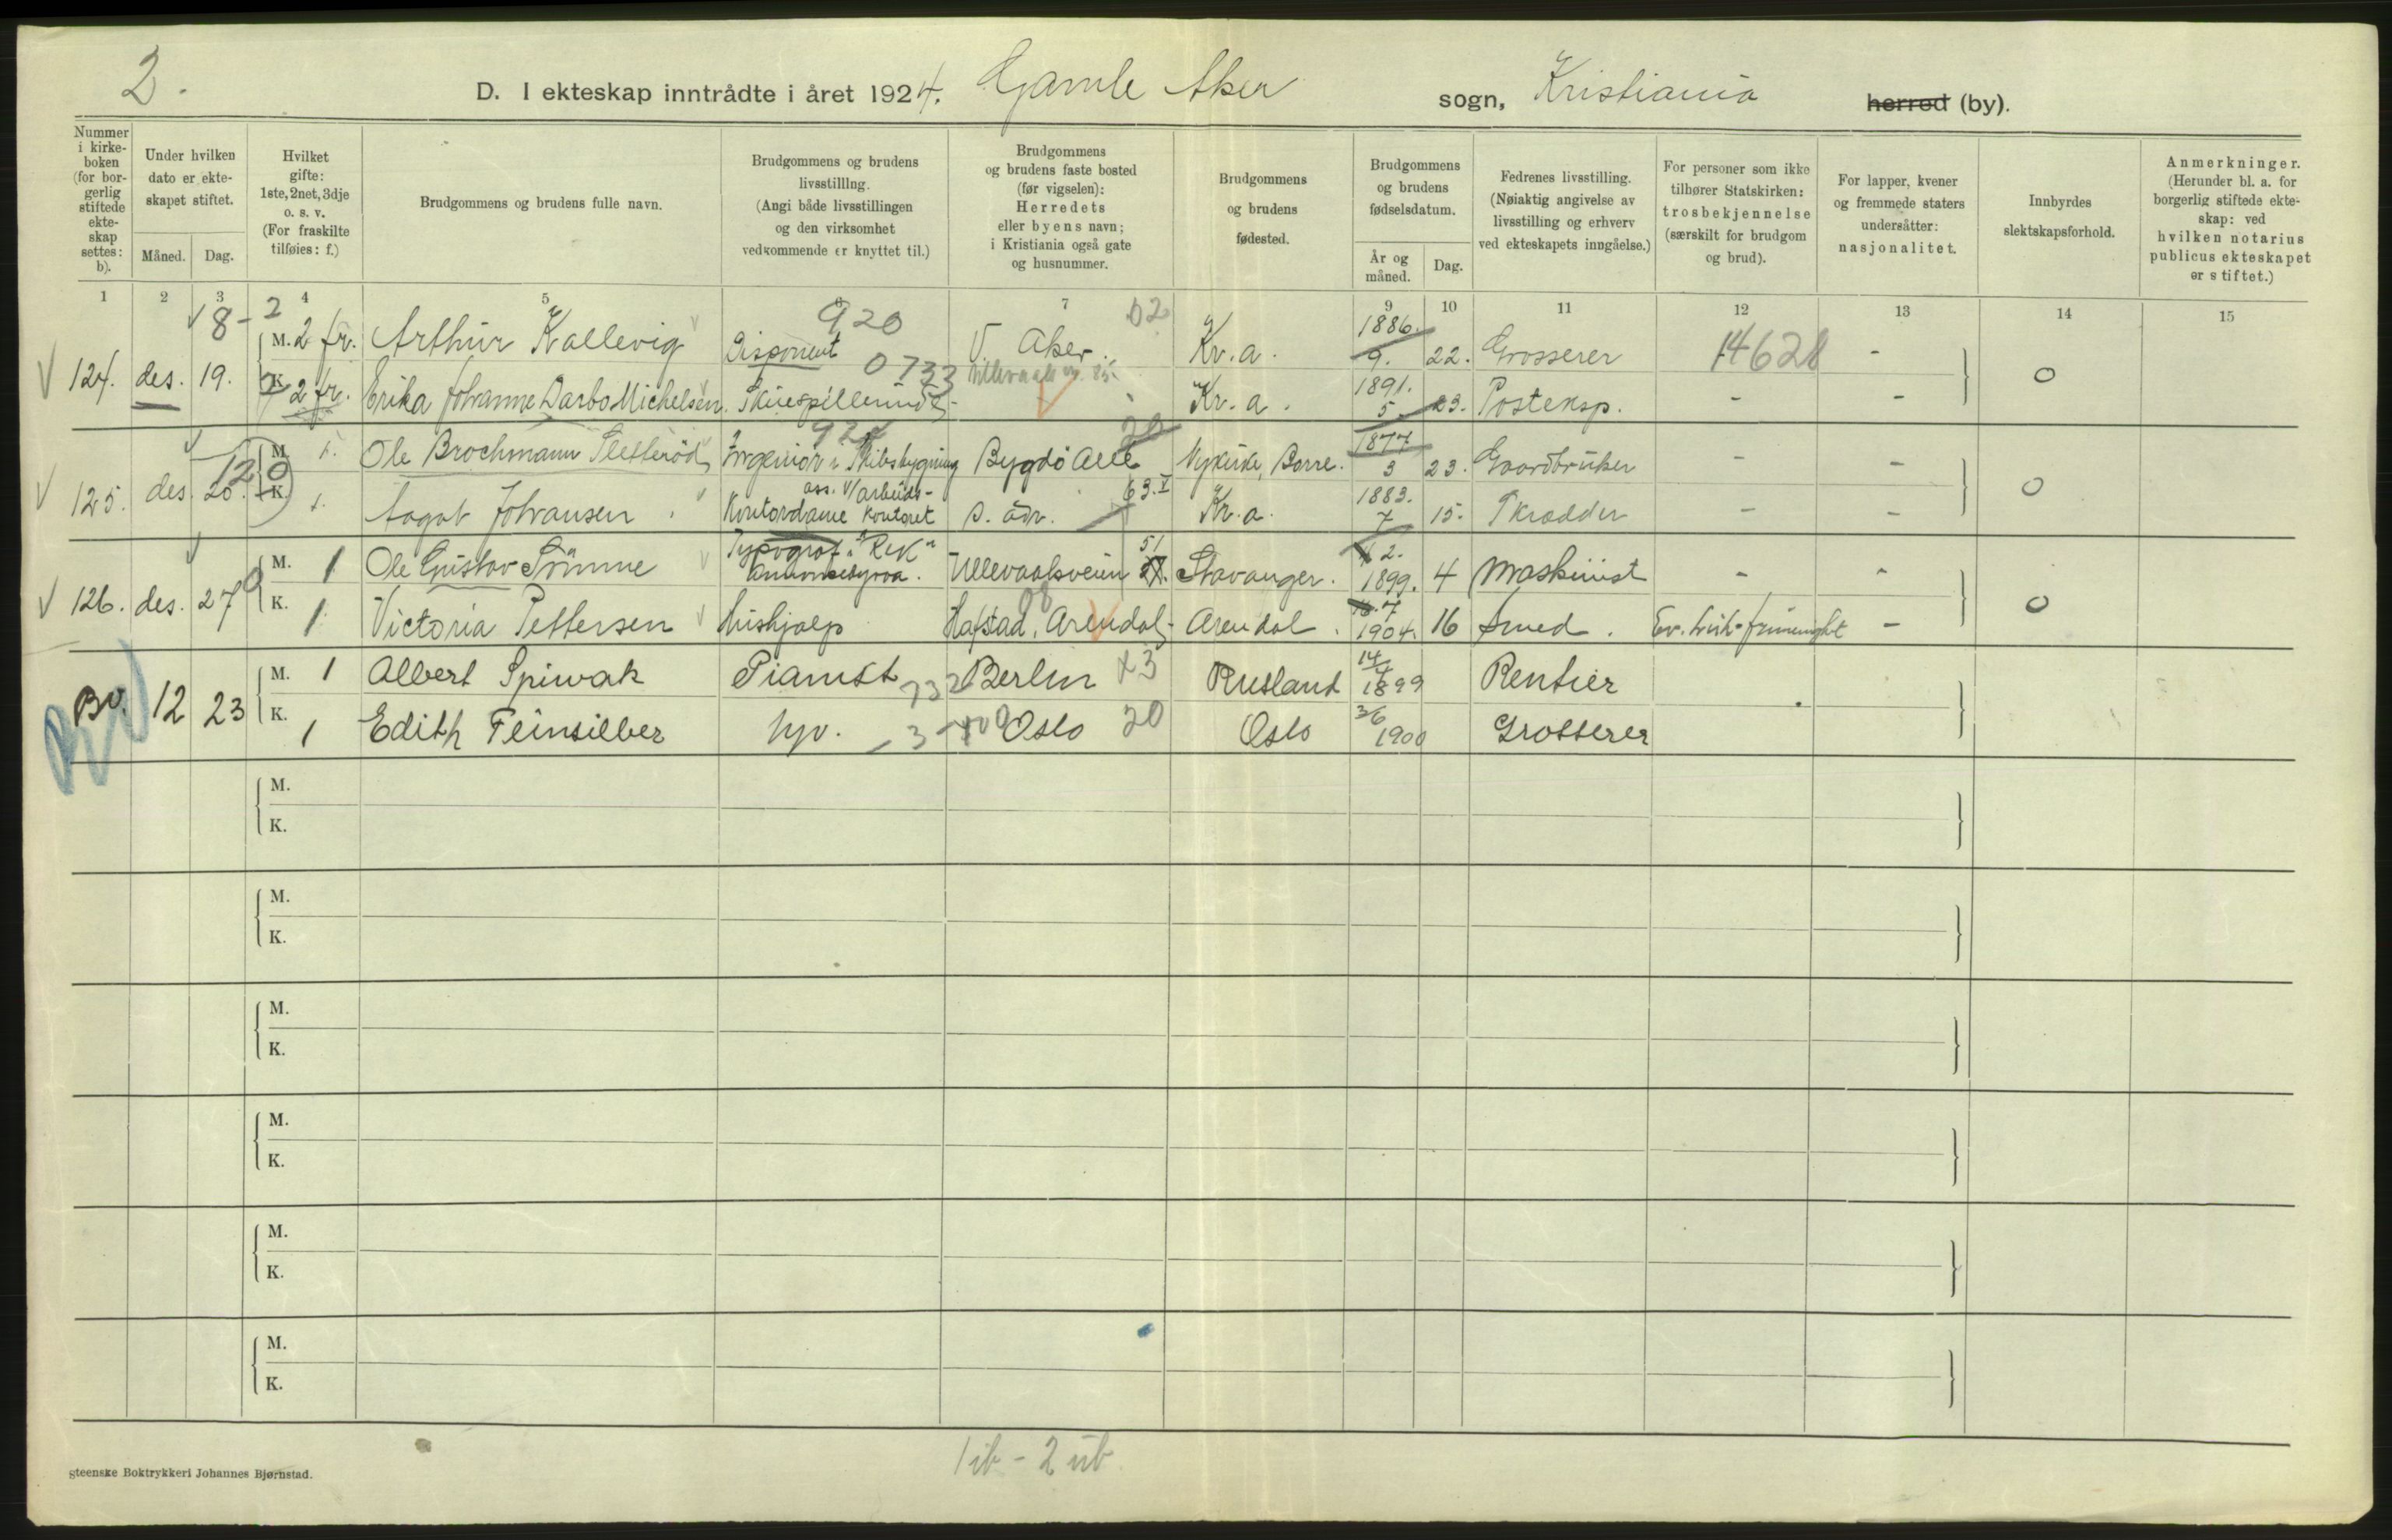 2.
D. I ekteskap inntrådte i året 1924. Gamle Aker sogn, Kristiania herred (by).
Nummer i kirke-boken (for bor-gerlig stiftede ekte-skap settes: b).
Under hvilken dato er ekte-skapet stiftet.
Måned. Dag.
Hvilket gifte: 1ste, 2net, 3dje o. s. v. (For fraskilte tilføies: f.)
Brudgommens og brudens fulle navn.
Brudgommens og brudens livsstilling. (Angi både livsstillingen og den virksomhet vedkommende er knyttet til.)
Brudgommens og brudens faste bosted (før vigselen): Herredets eller byens navn; i Kristiania også gate og husnummer.
Brudgommens og brudens fødested.
Brudgommens og brudens fødselsdatum.
År og måned. Dag.
Fedrenes livsstilling. (Nøiaktig angivelse av livsstilling og erhverv ved ekteskapets inngåelse.)
For personer som ikke tilhører Statskirken: trosbekjennelse (særskilt for brudgom og brud).
For lapper, kvener og fremmede staters undersåtter: nasjonalitet.
Innbyrdes slektskapsforhold.
Anmerkninger. (Herunder bl. a. for borgerlig stiftede ekte-skap: ved hvilken notarius publicus ekteskapet er stiftet.)
1 2 3 4 5 7 9 10 11 12 13 14 15
8-2 920 02
124. des. 19. M. 2 fr. Arthur Kallevig Disponent V. Aker. Kr.a. 1886. 9. 22. Grosserer 14628 -
0733
K. 2 fr. Erika Johanne Darbo Michelsen. Skuespillerinde Kr.a. 1891. 5. 23. Posteksp. - - 0
125. des. 20. M. 1. Ole Brochmann Ingeniör i Skibsbygning Bygdö Allé Nykirke, Borre. 1877 3 23. Gaardbruker - -
120
K. 1. Aagot Johansen Kontordame ass. v/ arbeids-kontoret 63. s. adr. Kr.a. 1883. 7 15. Skrædder - - 0
126. des. 27 M. 1 Ole Gustav Typograf i "Rek" Annoncebyraa. Ullevaalsveien 51 Stavanger. 2. 1899. 4 Maskinist - -
K. 1 Victoria Pettersen Hushjælp Arendal Arendal. 7 1904. 16 Smed. Ev. luth. frimenighet - 0
Bv. 12 23 M. 1 Albert Spiwak Pianist 732 Berlin x3 Rusland 14/4 1899 Rentier
K. 1 Edith Feinsilber hjv. Oslo 20 Oslo 3/6 1900 Grosserer
M.
K.
M.
K.
M.
K.
M.
K.
M.
K.
M.
K.
1 ib - 2 ub
steenske Boktrykkeri Johannes Bjørnstad.